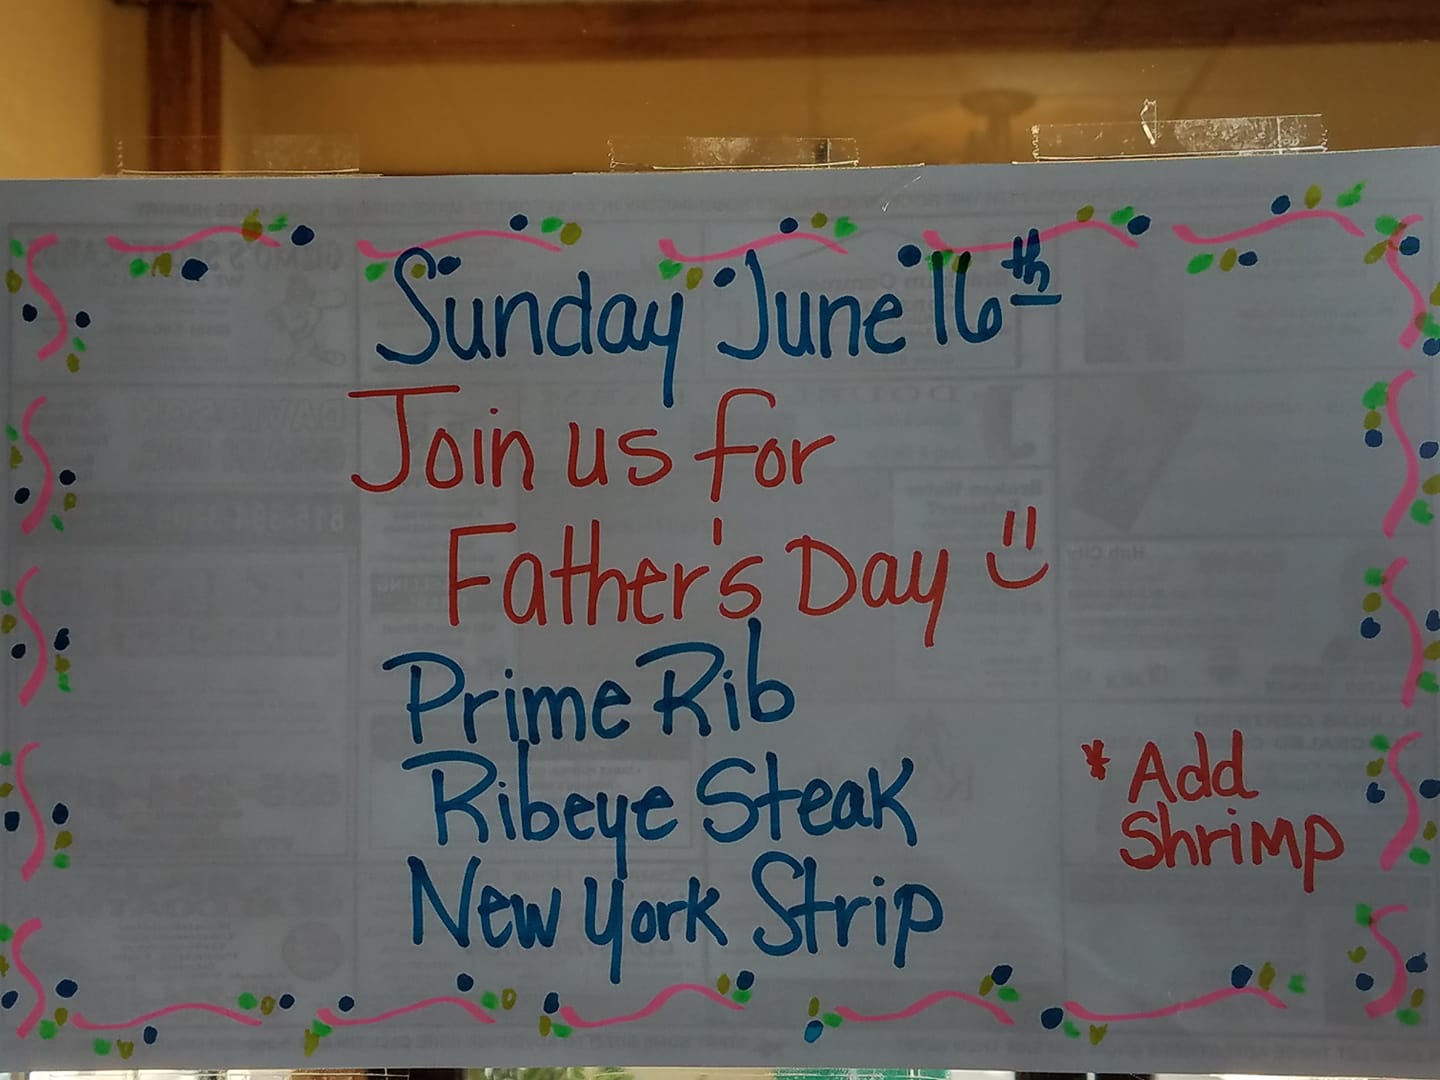 Sunday June 16th
Join us for
Father's Day
Prime Rib
Ribeye Steak
New York Strip
* Add
Shrimp